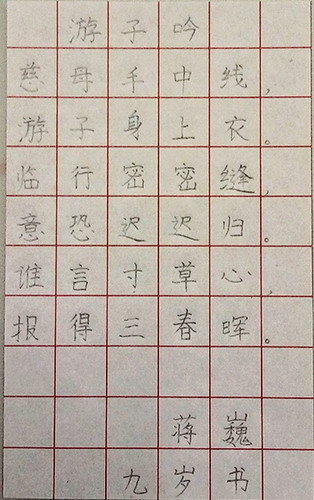 游子吟
慈母手中线，
游子身上衣。
临行密密缝，
意恐迟迟归。
谁言寸草心，
报得三春晖。
蒋巍
九岁书